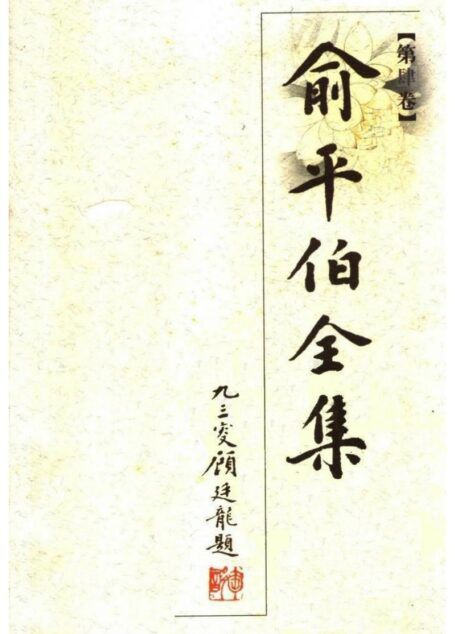 【第肆卷】
俞平伯全集
九三叟顾廷龍題